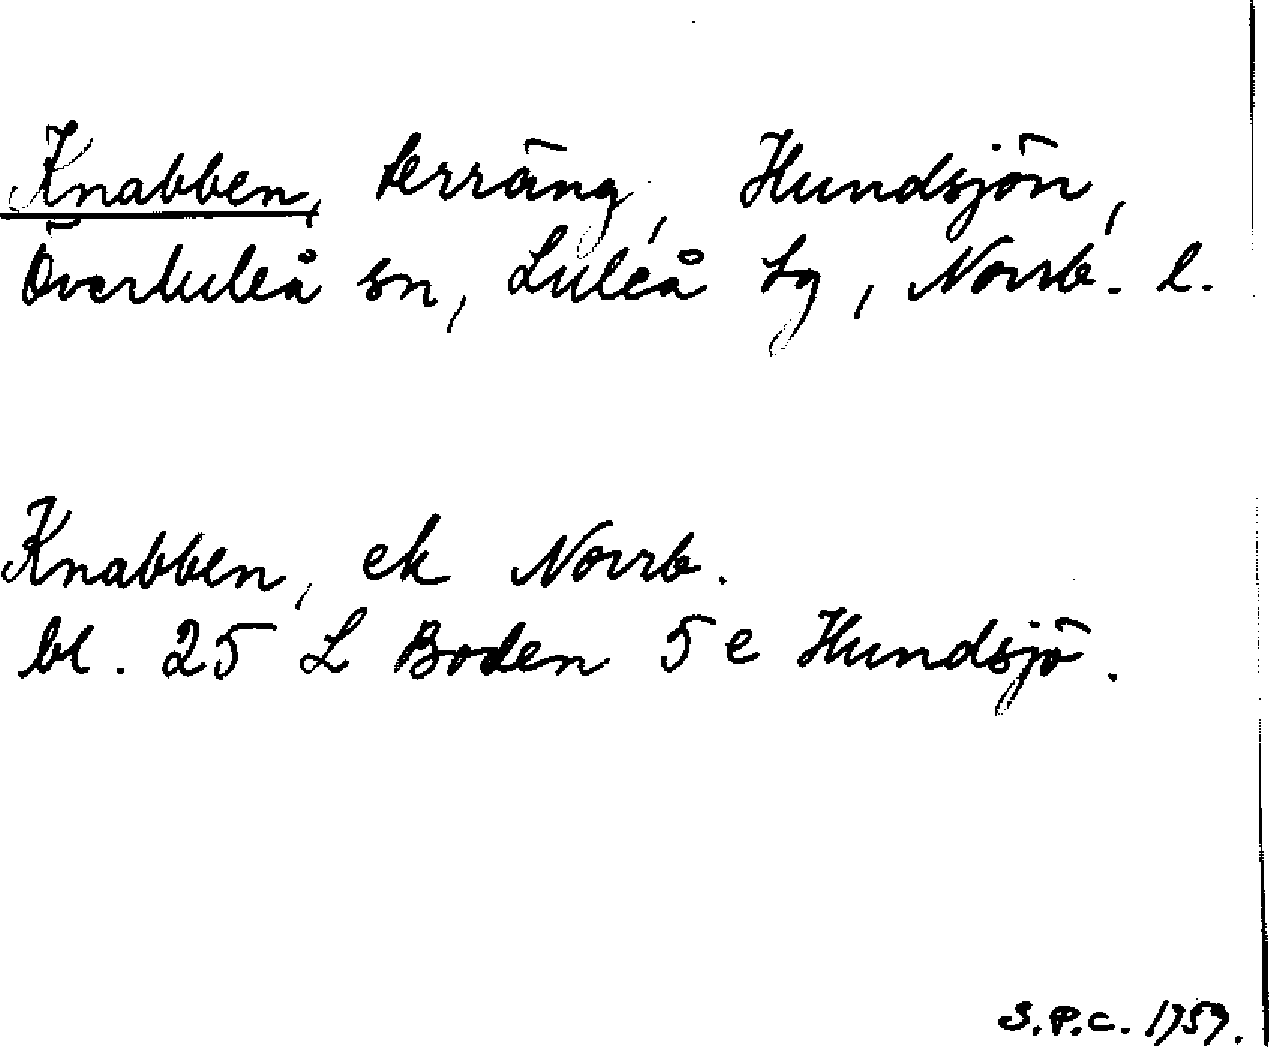 Knabben, terräng, Hundsjön,
Överluleå sn, Luleå tg, Norrb. l.
Knabben, ek Norrb.
bl. 25 L Boden 5 e Hundsjö.
S.P.C. 1959.